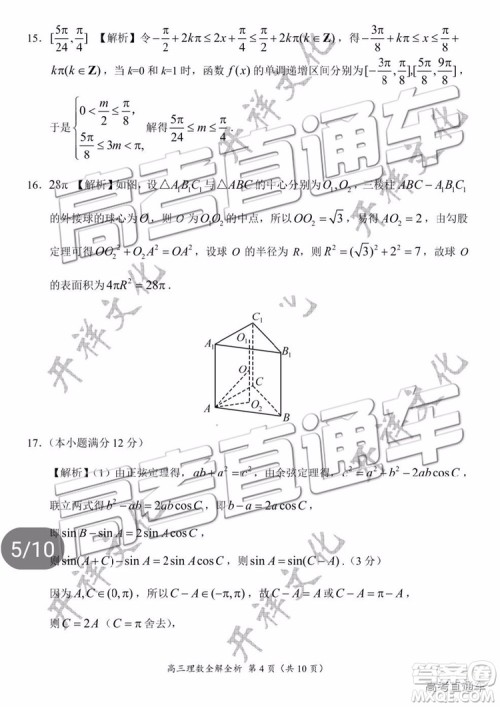 15．[5π/24, π/4] 【解析】令 -π/2+2kπ≤2x+π/4≤π/2+2kπ(k∈Z)，得 -3π/8+kπ≤x≤π/8+
kπ(k∈Z)，当 k=0 和 k=1 时，函数 f(x) 的单调递增区间分别为[-3π/8, π/8],[5π/8, 9π/8]，
于是{0<m/2≤π/8, 5π/8≤3m<π, 解得 5π/24≤m≤π/4．
16．28π 【解析】如图，设△A₁B₁C₁与△ABC 的中心分别为O₁,O₂，三棱柱 ABC－A₁B₁C₁
的外接球的球心为O，则 O 为 O₁O₂ 的中点，所以OO₂=√3，易得 AO₂=2，由勾股
定理可得OO₂²+O₂A²=OA²，设球 O 的半径为 R，则 R²=(√3)²+2²=7，故球 O
的表面积为4πR²=28π．
C₁
A₁
O₁
B₁
O
C
A
O₂
B
17．（本小题满分 12 分）
【解析】（1）由正弦定理得，ab+a²=c²，由余弦定理得，c²=a²+b²-2abcosC，
联立两式得 b²-ab=2abcosC，即 b-a=2acosC，
即sinB-sinA=2sinAcosC，
则sin(A+C)-sinA=2sinAcosC，则sinA=sin(C-A)．（3 分）
因为A,C∈(0,π)，所以C-A∈(-π,π)，故C-A=A 或C-A=π-A，
则 C=2A（C=π 舍去）
5/10
高三理数全解全析 第 4 页（共 10 页）
高考直通车
开祥文化
高考直通车
开祥文化
答案圈
高考直通车